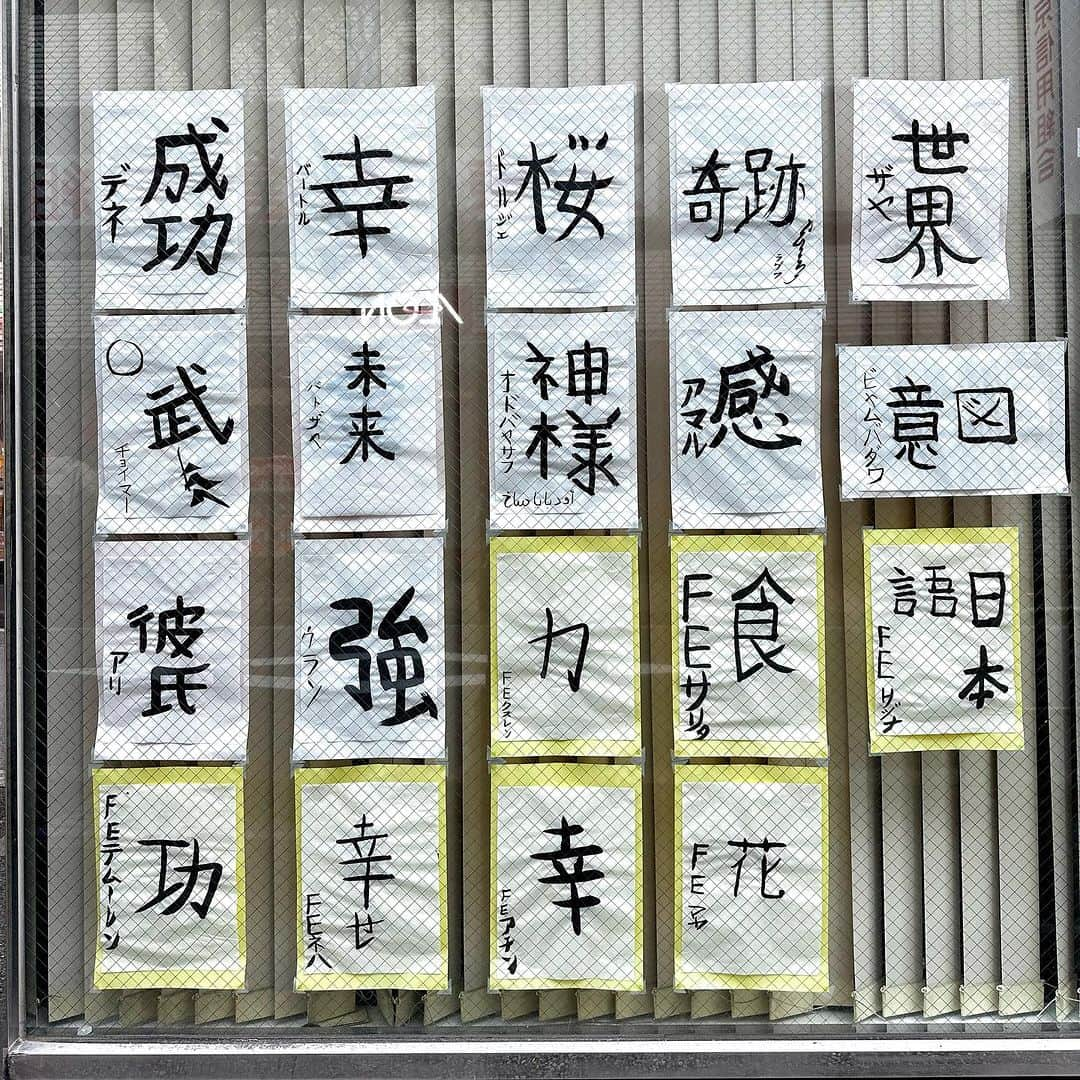 成功
デネ
幸
バートル
桜
ドルジェ
奇跡
世界
ザヤ
武
チョイマー
未来
バトザヤ
神様
オドバヤサフ
感
アマル
意図
ビャムバダワ
彼氏
アリ
強
ウラン
力
FEクスレン
食
FEサリタ
日本
語
FEリジナ
功
FEテムーレン
幸せ
FEネハ
幸
FEアチン
花
FE